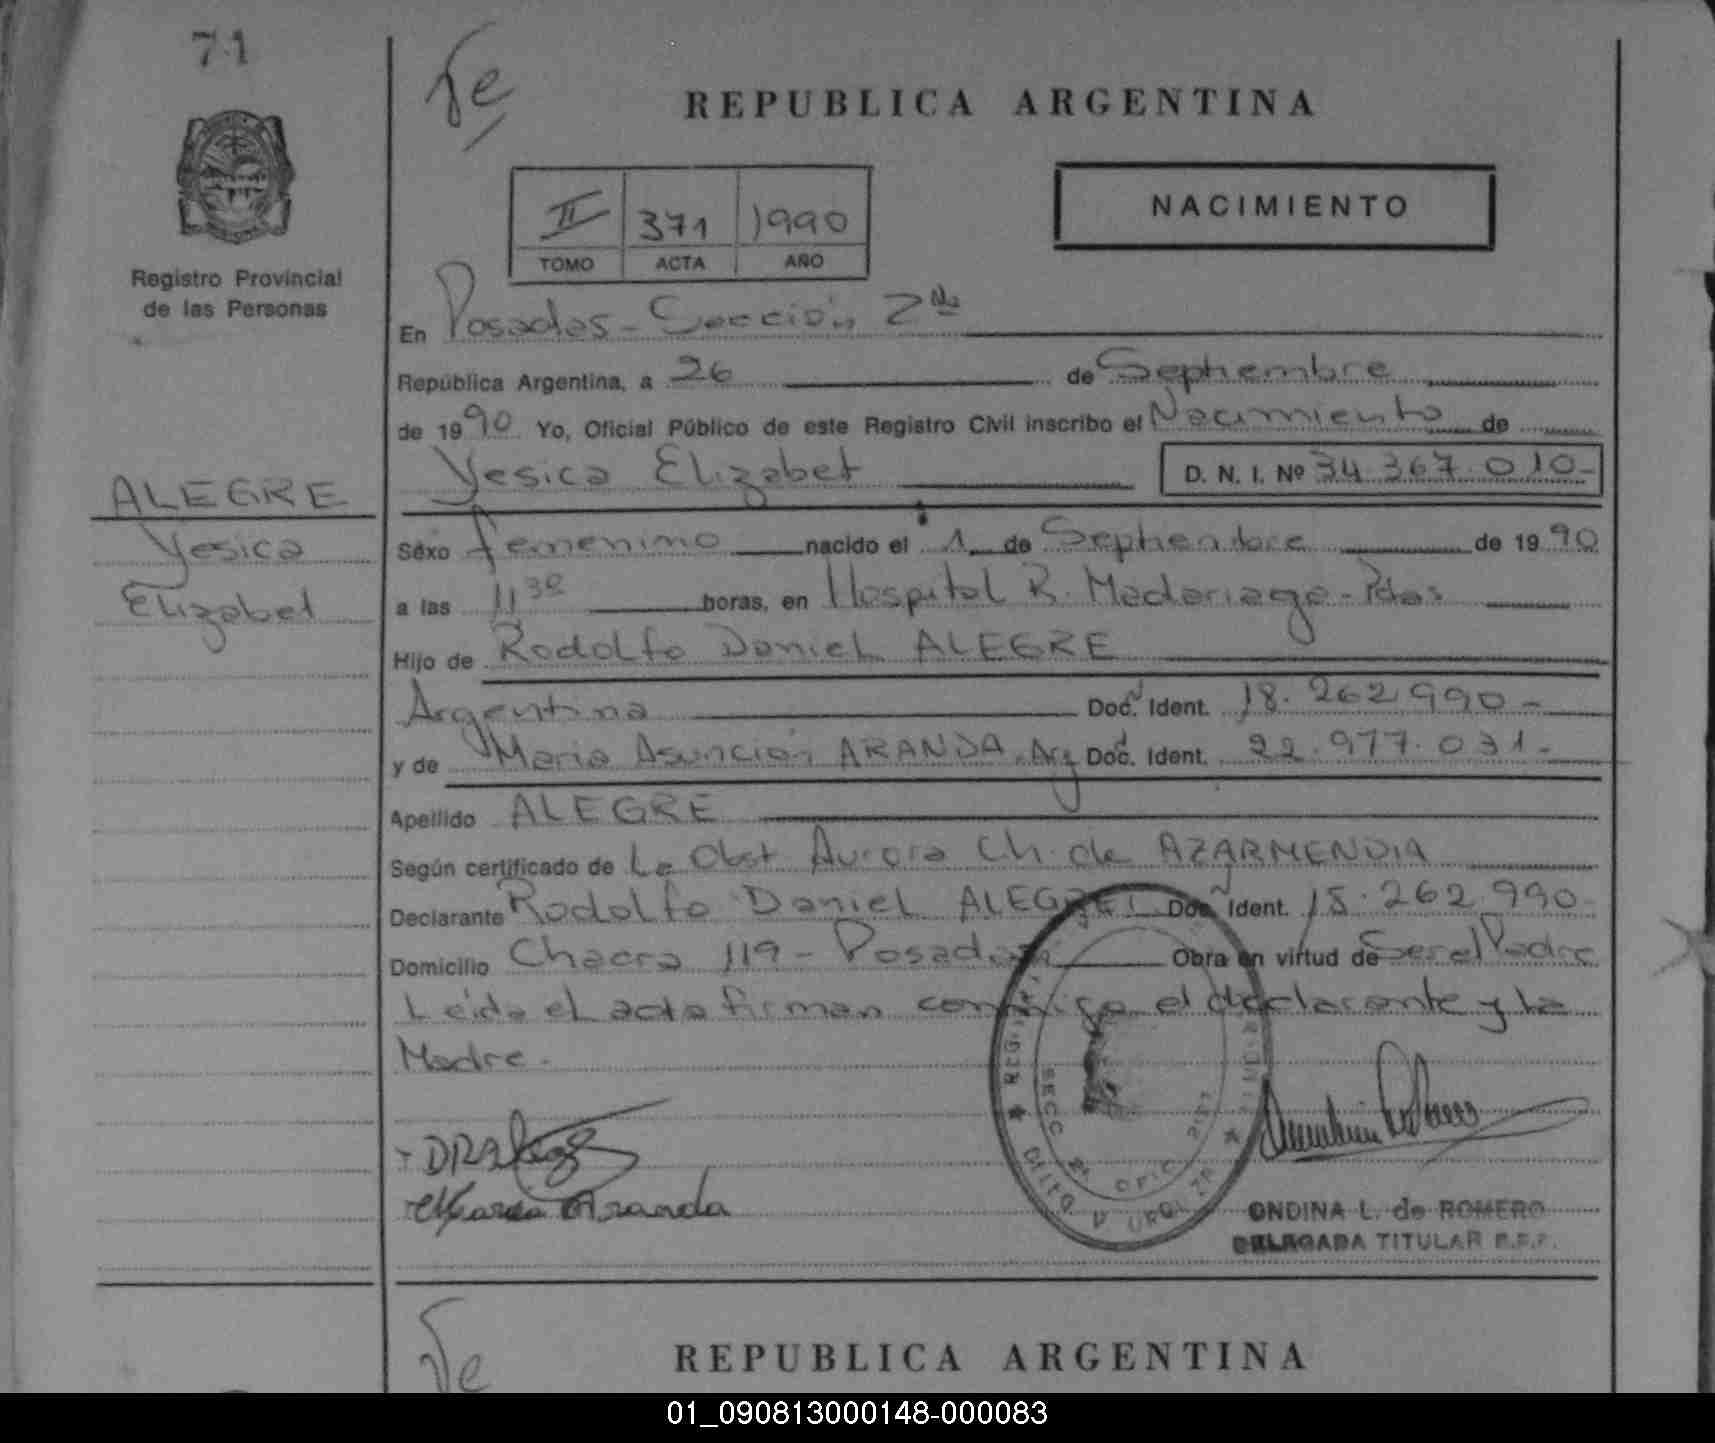 71
Fe
REPUBLICA ARGENTINA
NACIMIENTO
II 371 1990
TOMO ACTA AÑO
Registro Provincial
de las Personas
En Posadas - Sección 2da
República Argentina, a 26 de Septiembre
de 1990 Yo, Oficial Público de este Registro Civil inscribo el Nacimiento de
Yesica Elizabet D. N. I. Nº 34.367.010-
ALEGRE
Yesica
Elizabet
Sexo femenino nacido el 1 de Septiembre de 1990
a las 11 30 horas, en Hospital R. Madariaga - Pdas
Hijo de Rodolfo Daniel ALEGRE
Argentina Doc. Ident. 18.262.990-
y de Maria Asunción ARANDA, Arg Doc. Ident. 22.977.031-
Apellido ALEGRE
Según certificado de La Obst Aurora Ch. de AZARMENDIA
Declarante Rodolfo Daniel ALEGRE Doc. Ident. 18.262.990-
Domicilio Chacra 119 - Posadas Obra en virtud de Ser el Padre
Leida el acta firman conmigo el declarante y la
Madre.
Maria Aranda
SECC 2a OFIC
ONDINA L. de ROMERO
DELEGADA TITULAR
Fe
REPUBLICA ARGENTINA
01_090813000148-000083